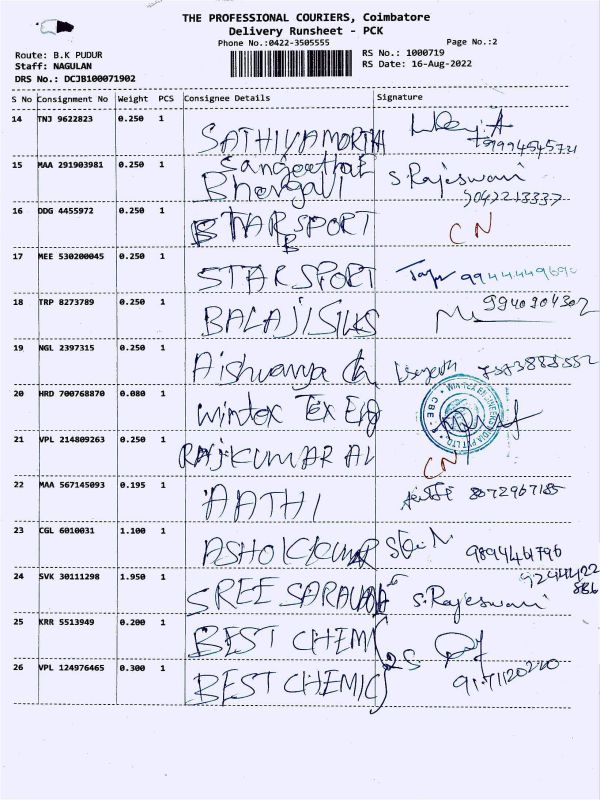 THE PROFESSIONAL COURIERS, Coimbatore
Delivery Runsheet - PCK
Phone No.:0422-3505555
Page No.:2
Route: B.K PUDUR
RS No.: 1000719
Staff: NAGULAN
RS Date: 16-Aug-2022
DRS No.: DCJB100071902
S No Consignment No Weight PCS Consignee Details Signature
14 TNJ 9622823 0.250 1 SATHIYAMORTHI
9994545731
15 MAA 291903981 0.250 1 Sangeetha S. Rajeswari
16 DDG 4455972 0.250 1 STAR SPORT CN
17 MEE 530200045 0.250 1 STAR SPORT
18 TRP 8273789 0.250 1 BALAJI SILKS 9940304302
19 NGL 2397315 0.250 1 Aishwarya Ch
20 HRD 700768870 0.080 1 Wintex Tex Eng
21 VPL 214809263 0.250 1 RAJKUMAR AV CN
22 MAA 567145093 0.195 1 AATHI 8072967185
23 CGL 6010031 1.100 1 ASHOKKUMAR 9894461796
24 SVK 30111298 1.950 1 SREE SARAVANA S. Rajeswari
25 KRR 5513949 0.200 1 BEST CHEMI
26 VPL 124976465 0.300 1 BEST CHEMIC